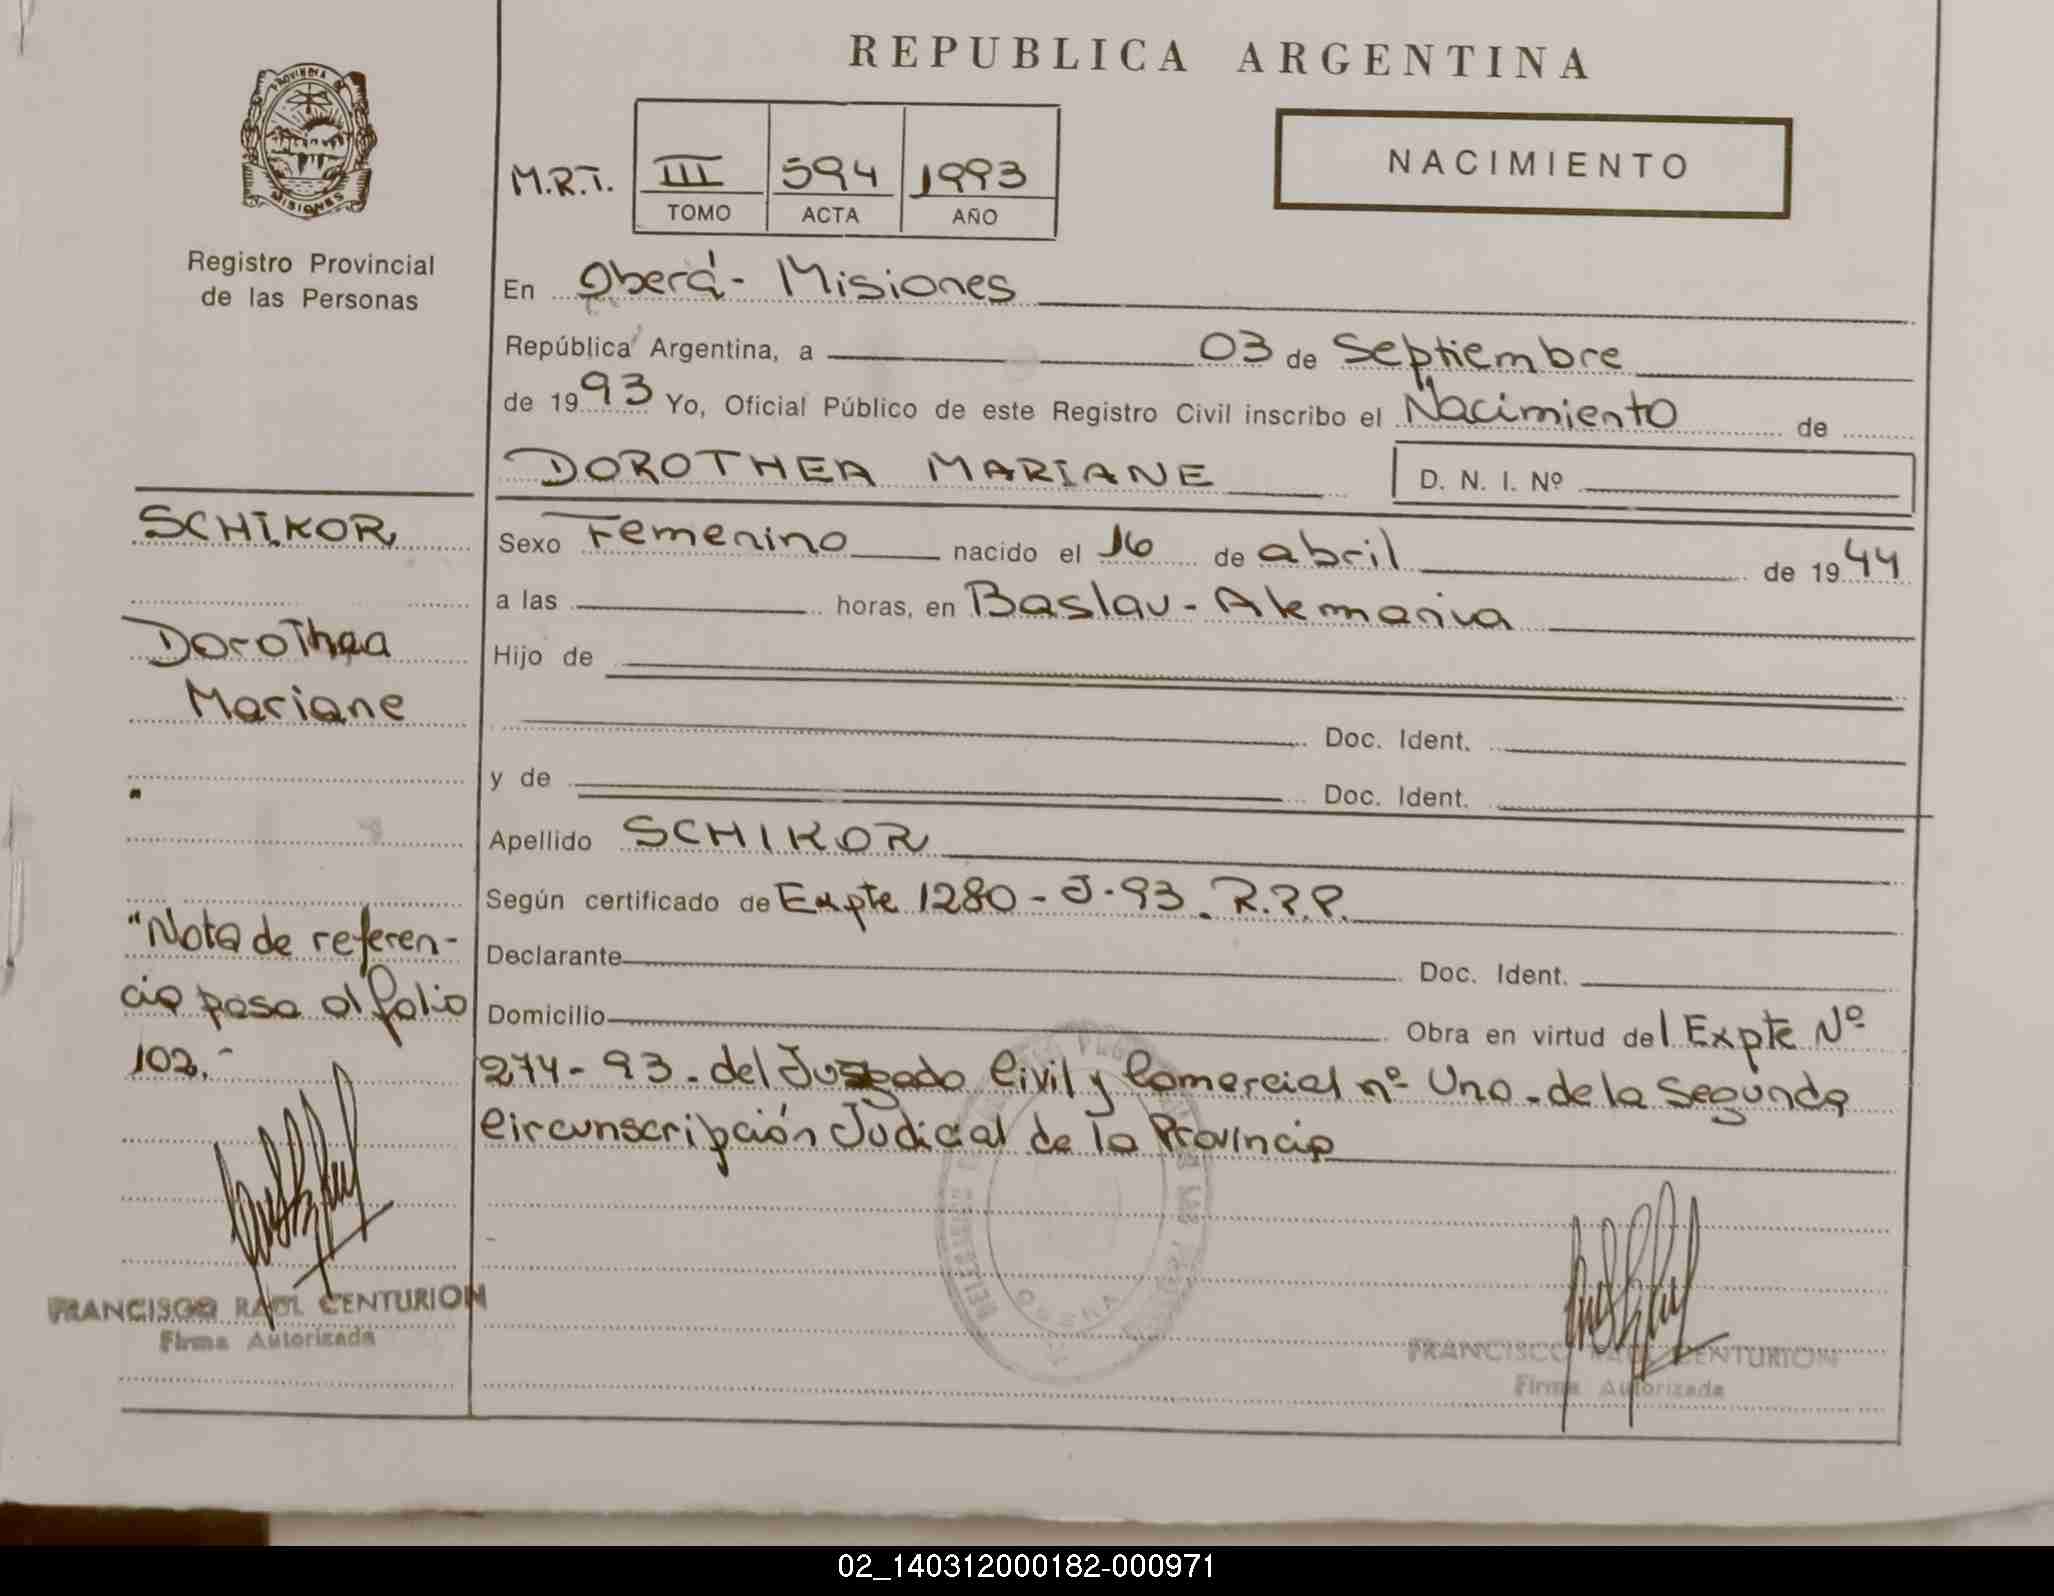 REPUBLICA ARGENTINA
PROVINCIA DE
MISIONES
Registro Provincial
de las Personas
M.R.T.
III 594 1993
TOMO ACTA AÑO
NACIMIENTO
En Oberá - Misiones
República Argentina, a 03 de Septiembre
de 1993 Yo, Oficial Público de este Registro Civil inscribo el Nacimiento de
DOROTHEA MARIANE D. N. I. Nº
Sexo Femenino nacido el 16 de abril de 1944
a las horas, en Baslau - Alemania
Hijo de
Doc. Ident.
y de Doc. Ident.
Apellido SCHIKOR
Según certificado de Expte 1280 - J - 93. R.P.P.
Declarante Doc. Ident.
Domicilio Obra en virtud del Expte Nº
274 - 93 . del Juzgado Civil y Comercial nº Uno . de la Segunda
Circunscripción Judicial de la Provincia
FRANCISCO RAUL CENTURION
Firma Autorizada
SCHIKOR
Dorothea
Mariane
"Nota de referen-
cia pasa al folio
102.-
FRANCISCO RAUL CENTURION
Firma Autorizada
02_140312000182-000971